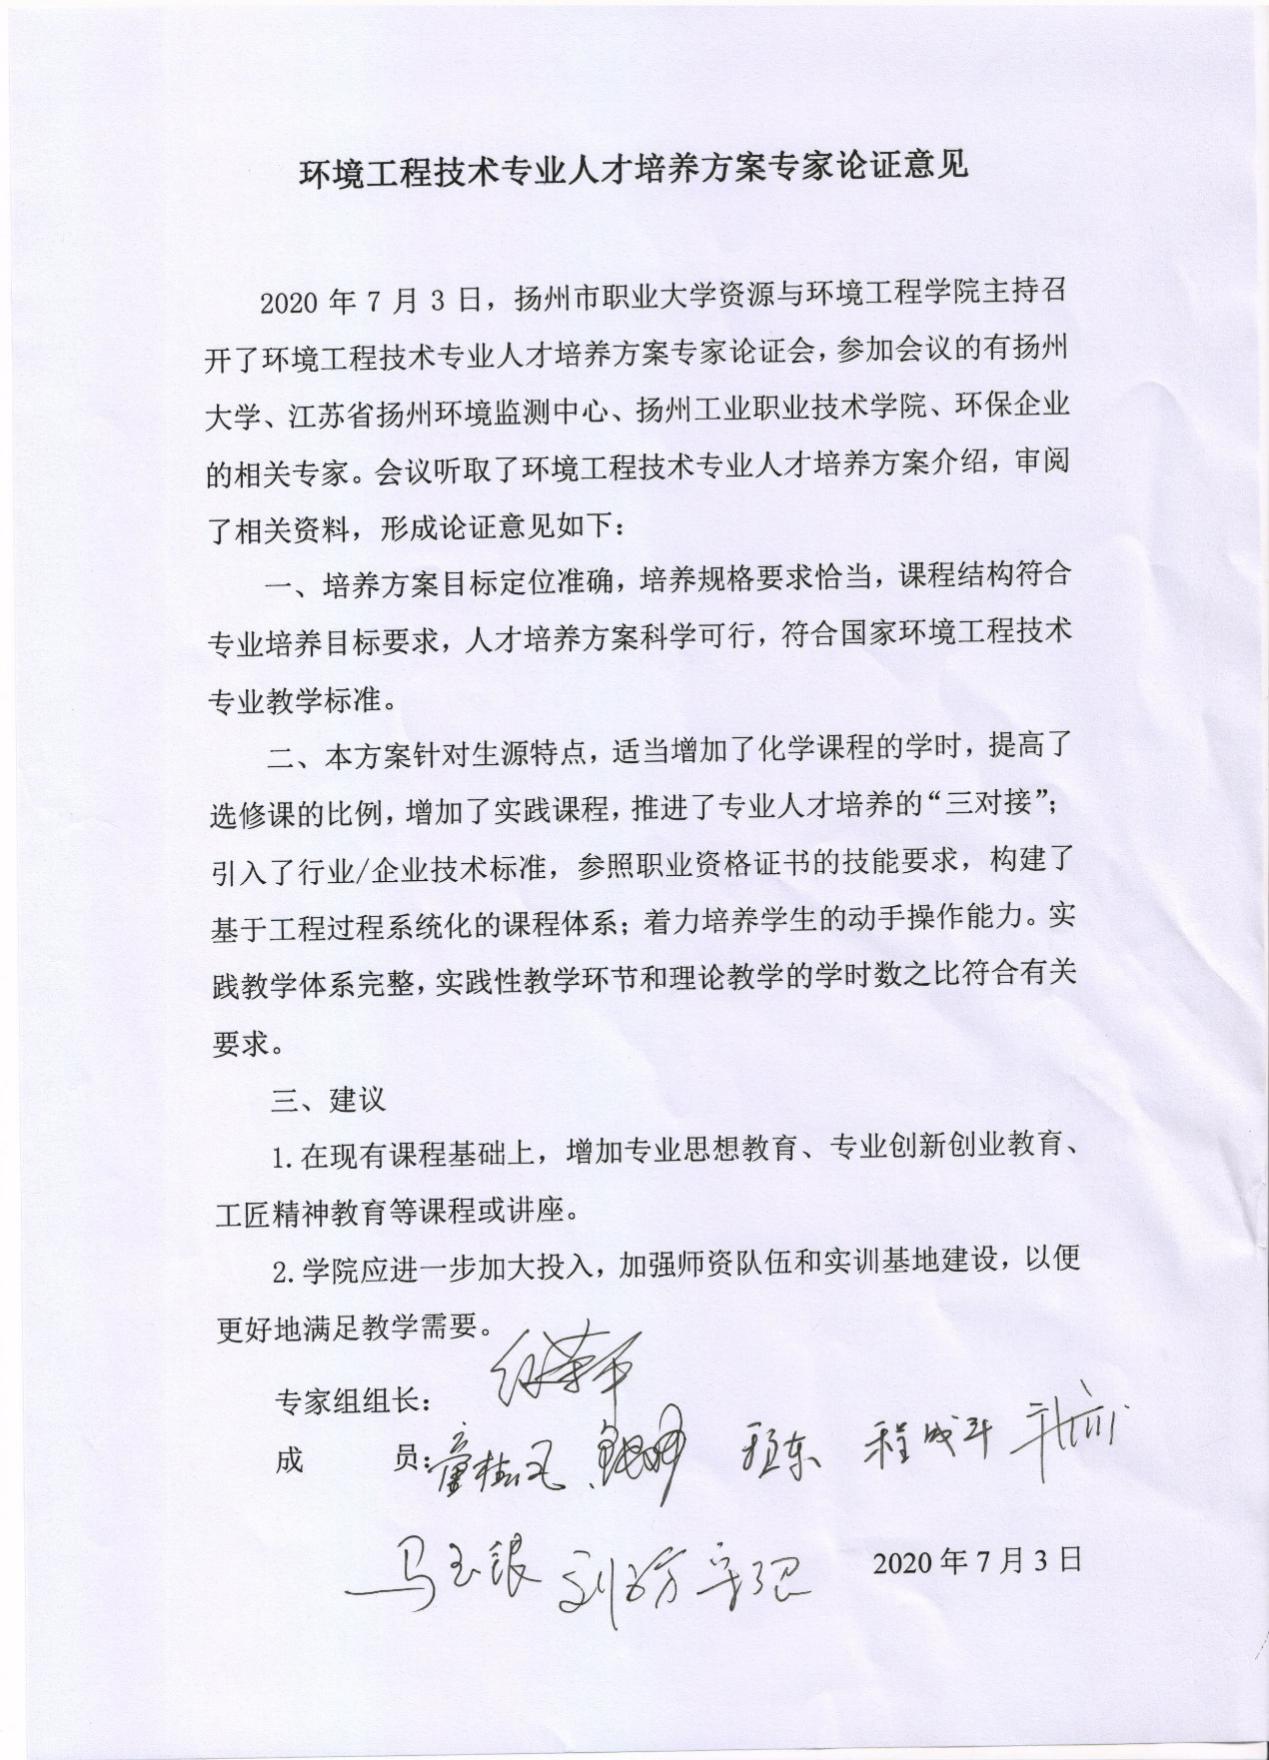 环境工程技术专业人才培养方案专家论证意见
2020 年 7 月 3 日，扬州市职业大学资源与环境工程学院主持召
开了环境工程技术专业人才培养方案专家论证会，参加会议的有扬州
大学、江苏省扬州环境监测中心、扬州工业职业技术学院、环保企业
的相关专家。会议听取了环境工程技术专业人才培养方案介绍，审阅
了相关资料，形成论证意见如下：
一、培养方案目标定位准确，培养规格要求恰当，课程结构符合
专业培养目标要求，人才培养方案科学可行，符合国家环境工程技术
专业教学标准。
二、本方案针对生源特点，适当增加了化学课程的学时，提高了
选修课的比例，增加了实践课程，推进了专业人才培养的“三对接”；
引入了行业/企业技术标准，参照职业资格证书的技能要求，构建了
基于工程过程系统化的课程体系；着力培养学生的动手操作能力。实
践教学体系完整，实践性教学环节和理论教学的学时数之比符合有关
要求。
三、建议
1.在现有课程基础上，增加专业思想教育、专业创新创业教育、
工匠精神教育等课程或讲座。
2.学院应进一步加大投入，加强师资队伍和实训基地建设，以便
更好地满足教学需要。
专家组组长：
成 员： 程成斗
马玉银 2020 年 7 月 3 日